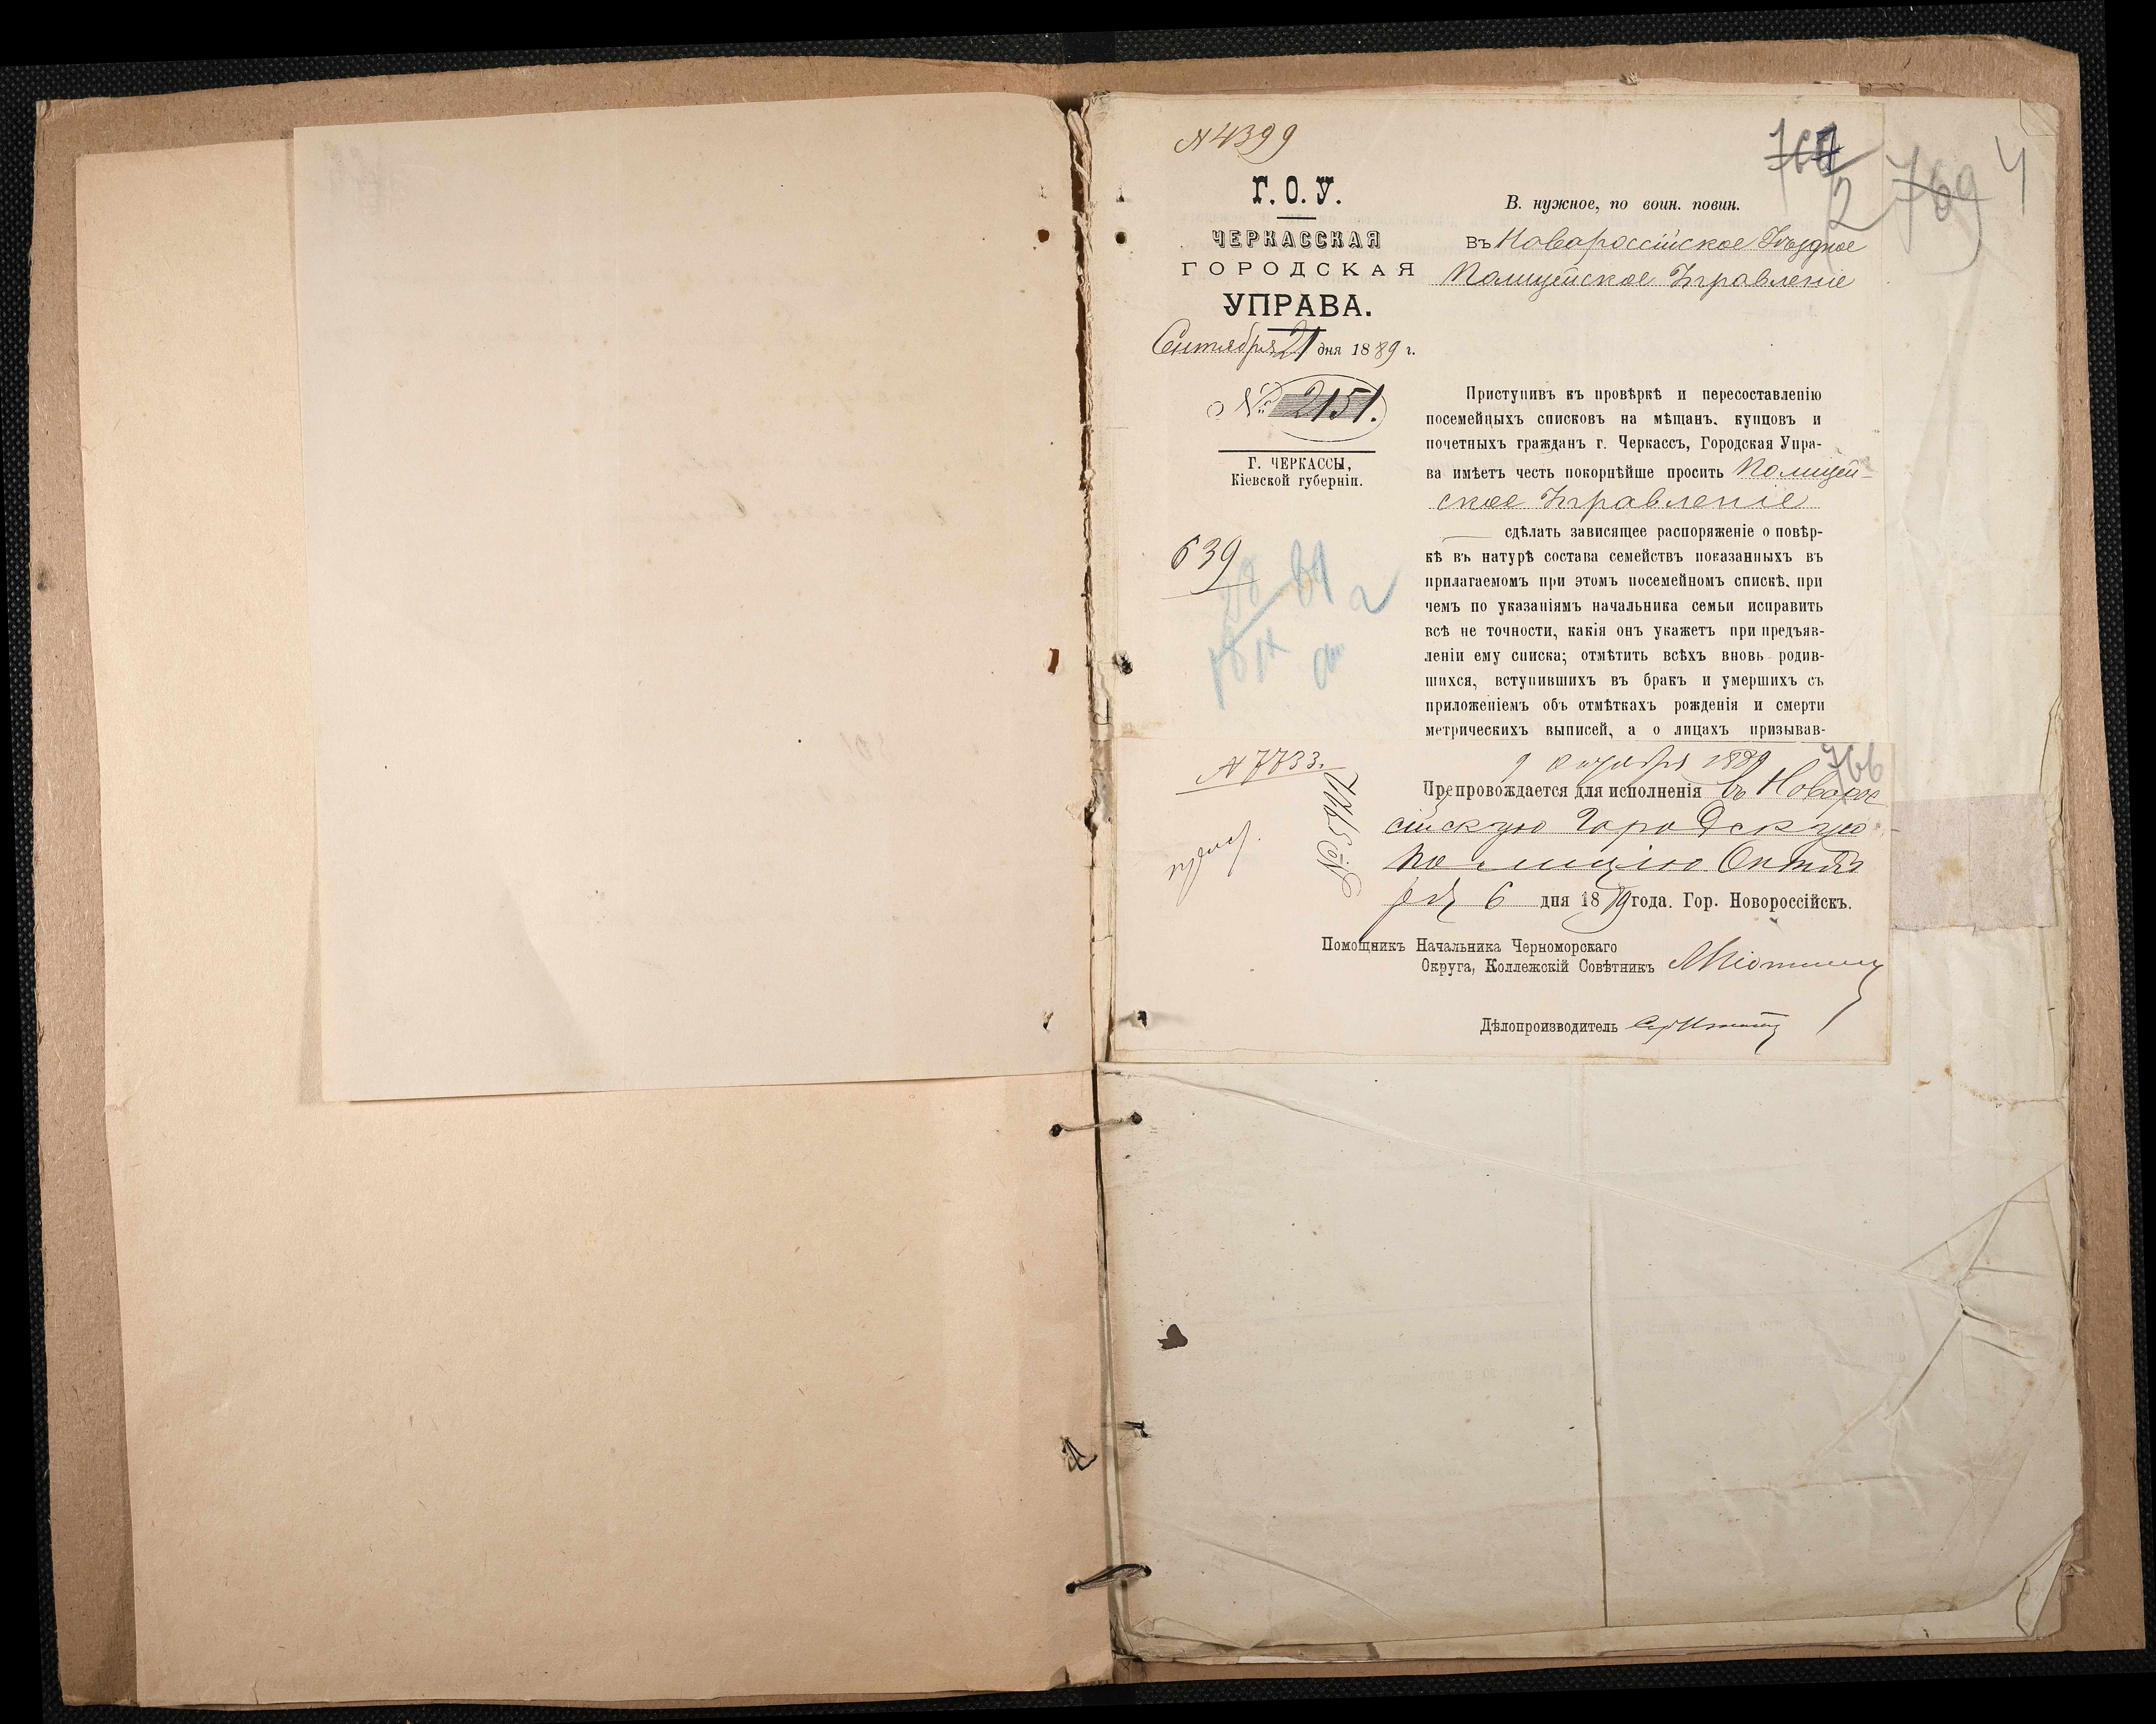 № 4399
Г. О. У.
ЧЕРКАССКАЯ
ГОРОДСКАЯ
УПРАВА.
Сентября 21 дня 1889 г.
№ 2151.
Г. ЧЕРКАССЫ,
Кіевской губерніи.
639
2
769
4
В. нужное, по воин. повин.
Въ Новороссійское Уѣздное
Полицейское Управленіе
Приступивъ къ провѣркѣ и пересоставленію
посемейцыхъ списковъ на мѣщанъ, купцовъ и
почетныхъ гражданъ г. Черкассъ, Городская Упра-
ва имѣетъ честь покорнѣйше просить Полицей-
ское Управленіе
сдѣлать зависящее распоряженіе о повѣр-
кѣ въ натурѣ состава семействъ показанныхъ въ
прилагаемомъ при этомъ посемейномъ спискѣ, при
чемъ по указаніямъ начальника семьи исправить
всѣ не точности, какія онъ укажетъ при предъяв-
леніи ему списка; отмѣтить всѣхъ вновь родив-
шихся, вступившихъ въ бракъ и умершихъ съ
приложеніемъ объ отмѣткахъ рожденія и смерти
метрическихъ выписей, а о лицахъ призывав-
№ 7733.
9 октября 1889
766
Препровождается для исполненія въ Новорос
сійскую Городскую
полицію Октяб
ря 6 дня 1889 года. Гор. Новороссійскъ.
Помощникъ Начальника Черноморскаго
Округа, Коллежскій Совѣтникъ
Дѣлопроизводитель